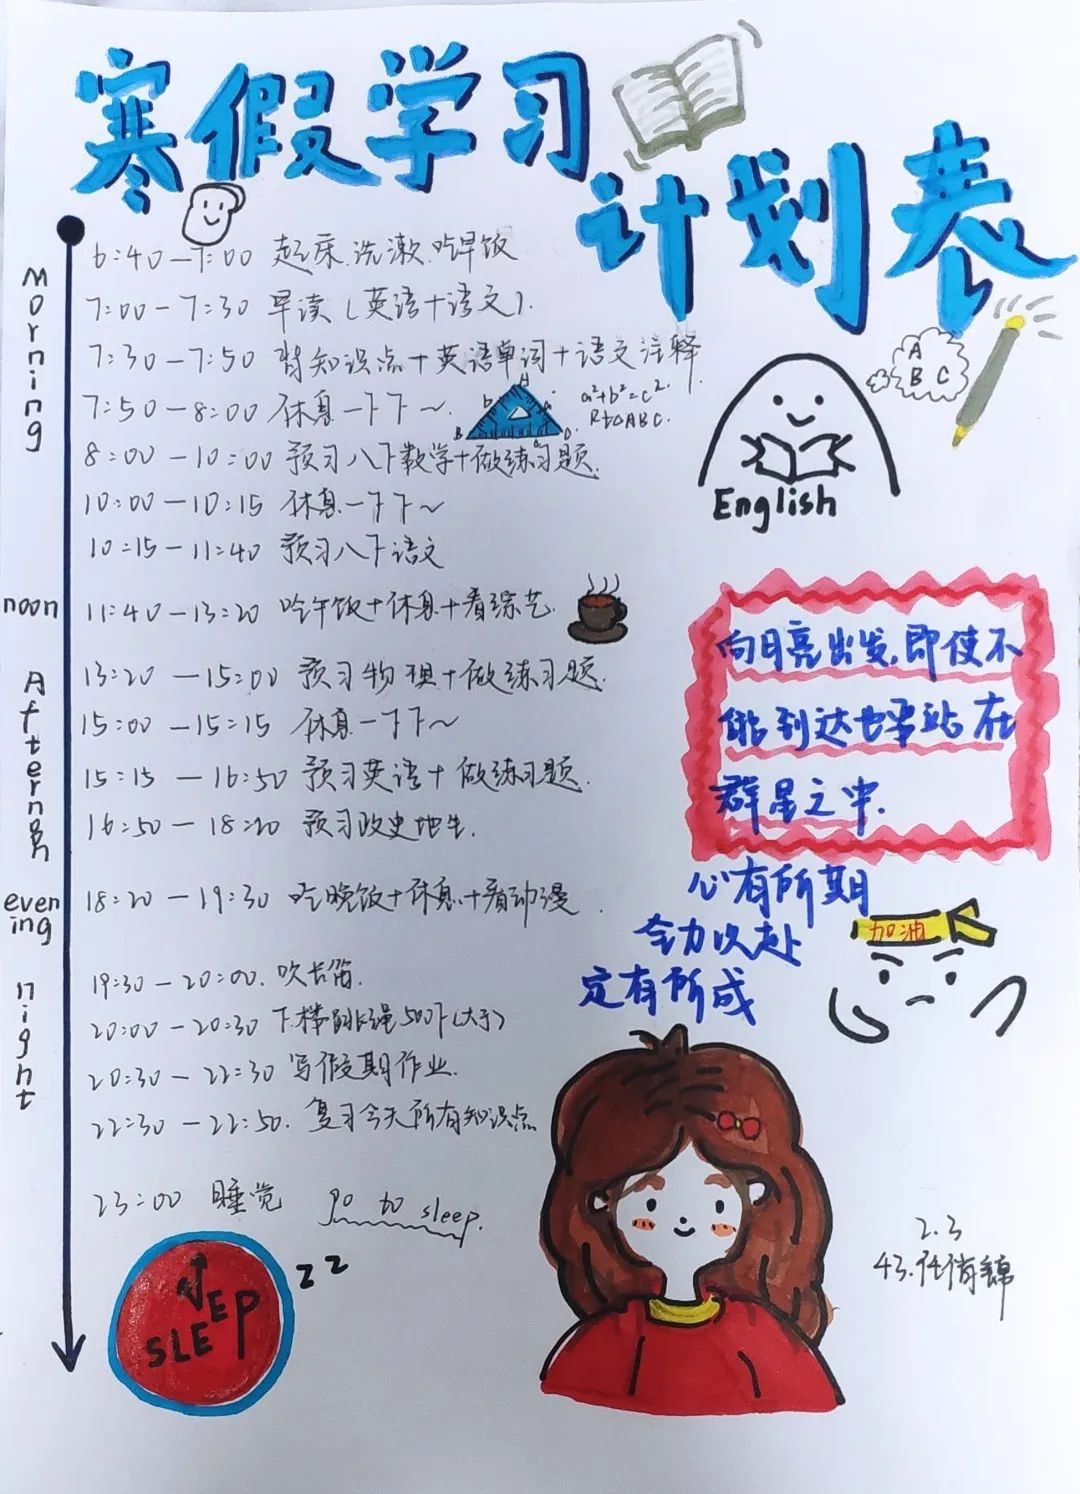 寒假学习
计划表
Morning
6:40—7:00 起床.洗漱.吃早饭
7:00—7:30 早读(英语+语文).
7:30—7:50 背知识点+英语单词+语文注释.
7:50—8:00 休息一下下~.
a²+b²=c².
Rt△ABC.
A
B C
English
8:00—10:00 预习八下数学+做练习题.
10:00—10:15 休息一下下~
10:15—11:40 预习八下语文
noon
11:40—13:20 吃午饭+休息+看综艺.
Afternoon
13:20—15:00 预习物理+做练习题.
15:00—15:15 休息一下下~
15:15—16:50 预习英语+做练习题.
16:50—18:20 预习政史地生.
向月亮出发,即使不
能到达也能站在
群星之中.
evening
18:20—19:30 吃晚饭+休息+看动漫.
心有所期
全力以赴
定有所成
加油
night
19:30—20:00.吹长笛.
20:00—20:30 下楼跳绳500下(大于)
20:30—22:30 写假期作业.
22:30—22:50.复习今天所有知识点
23:00 睡觉 go to sleep.
SLEEP
zz
2.3
43.任倩锦